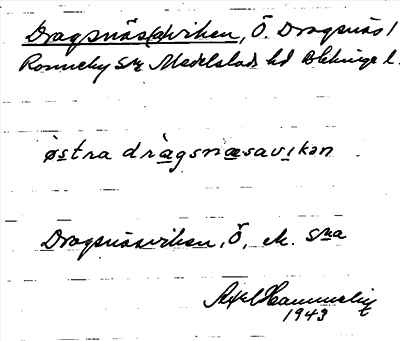 Dragsnäs(a)viken, Ö. Dragsnäs 1
Ronneby sn Medelstads hd Blekinge l.
østra dràgsnæsavikən
Dragsnäsviken, Ö, ek. sna
Axel Hammelig
1943